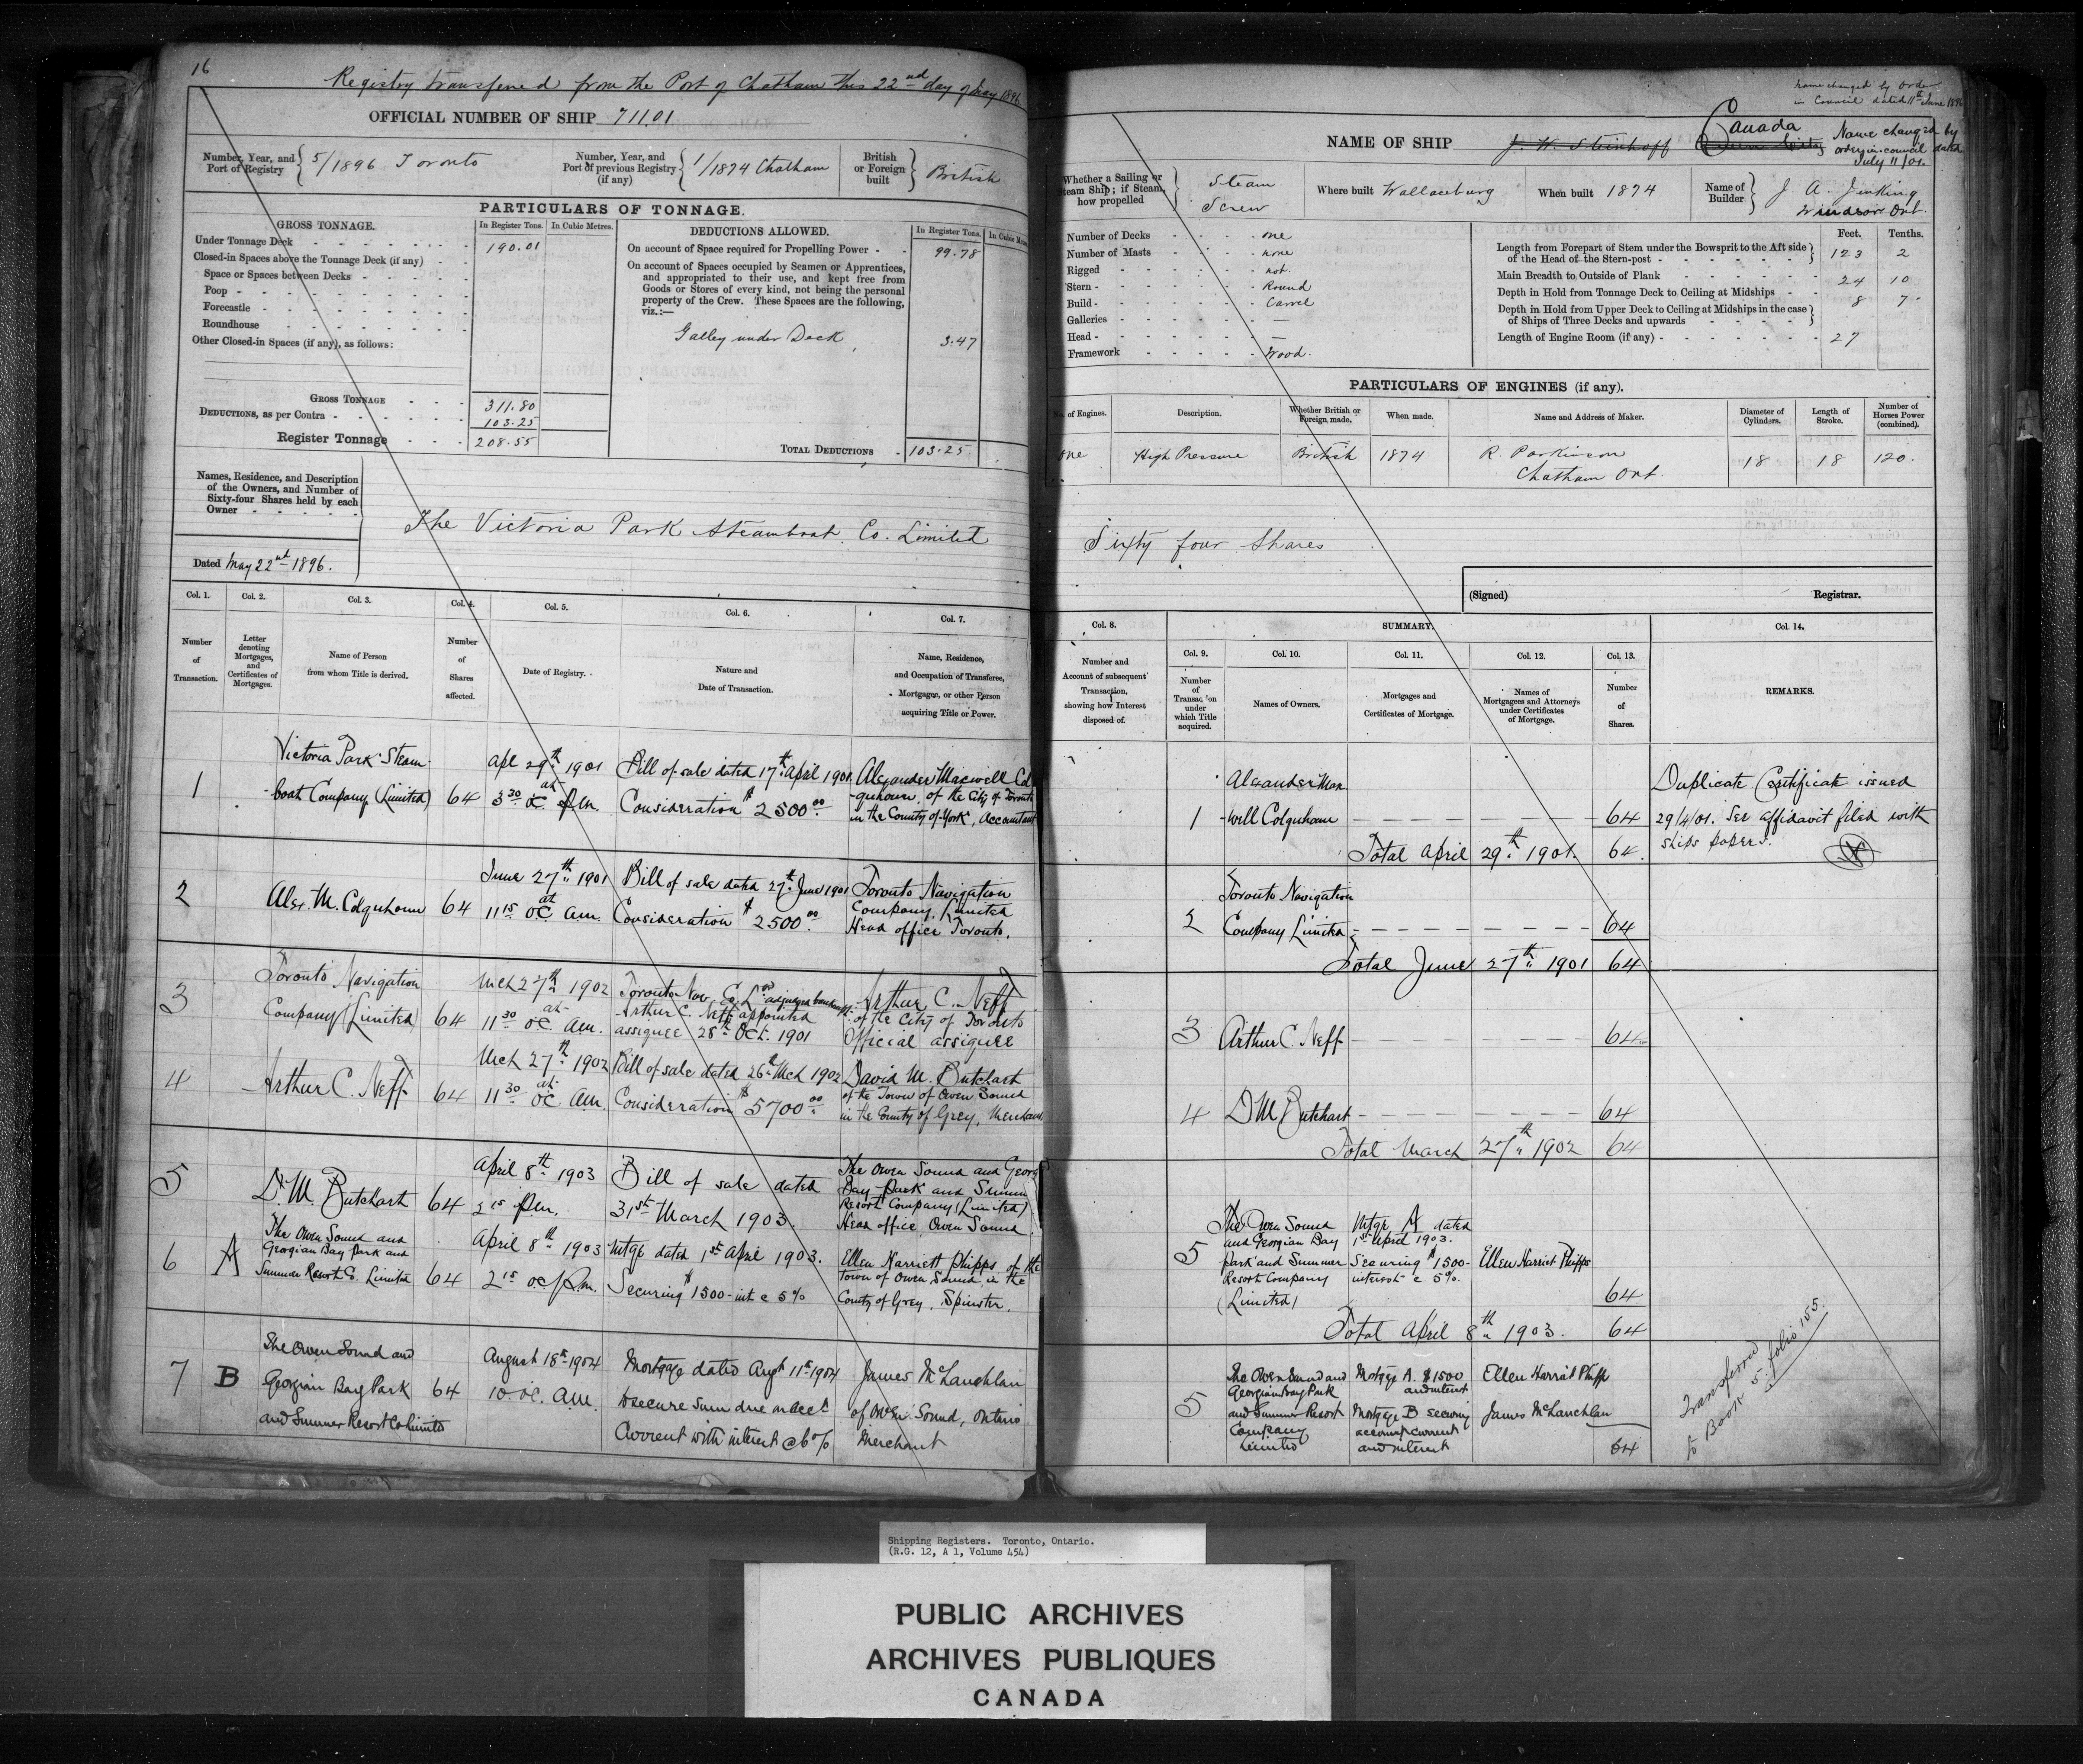 16
Registry transfered from the Port of Chatham this 22nd day of May 1896
OFFICIAL NUMBER OF SHIP 71101
Number, Year, and Port of Registry } 5/1896 Toronto
Number, Year, and Port of previous Registry (if any) { 1/1874 Chatham
British or Foreign built } British
PARTICULARS OF TONNAGE.
GROSS TONNAGE.
In Register Tons.
In Cubic Metres.
Under Tonnage Deck 190.01
Closed-in Spaces above the Tonnage Deck (if any)
Space or Spaces between Decks
Poop
Forecastle
Roundhouse
Other Closed-in Spaces (if any), as follows:
GROSS TONNAGE 311.80
DEDUCTIONS, as per Contra 103.25
Register Tonnage 208.55
DEDUCTIONS ALLOWED.
In Register Tons.
On account of Space required for Propelling Power 99.78
On account of Spaces occupied by Seamen or Apprentices,
and appropriated to their use, and kept free from
Goods or Stores of every kind, not being the personal
property of the Crew. These Spaces are the following,
viz.:—
Galley under Deck 3.47
TOTAL DEDUCTIONS 103.25
Names, Residence, and Description
of the Owners, and Number of
Sixty-four Shares held by each
Owner
The Victoria Park Steamboat Co. Limited
Dated May 22nd 1896.
Col. 1. Col. 2. Col. 3. Col. 4. Col. 5. Col. 6. Col. 7.
Number of Transaction.
Letter denoting Mortgages, and Certificates of Mortgages.
Name of Person from whom Title is derived.
Number of Shares affected.
Date of Registry.
Nature and Date of Transaction.
Name, Residence, and Occupation of Transferee, Mortgagee, or other Person acquiring Title or Power.
1
Victoria Park Steam-
boat Company (Limited)
64
Apl 29th 1901
at 3.30 oc pm.
Bill of sale dated 17th April 1901.
Consideration $2500.00
Alexander Maxwell Col-
quhoun, of the City of Toronto
in the County of York, Accountant
2
Alex. M. Colquhoun
64
June 27th 1901
at 11.15 oc am.
Bill of sale dated 27th June 1901
Consideration $2500.00
Toronto Navigation
Company, Limited
Head office Toronto.
3
Toronto Navigation
Company (Limited)
64
Mch 27th 1902
at 11.30 oc am.
Toronto Nav. Co. Ltd adjudged bankrupt.
Arthur C. Neff appointed
assignee 28th Oct. 1901
Arthur C. Neff
of the City of Toronto
Official assignee
4
Arthur C. Neff
64
Mch 27th 1902
at 11.30 oc am.
Bill of sale dated 26th Mch 1902
Consideration $5700.00
David M. Butchart
of the Town of Owen Sound
in the County of Grey, Merchant
5
D. M. Butchart
64
April 8th 1903
2.15 pm.
Bill of sale dated
31st March 1903.
The Owen Sound and Georg
Bay Park and Summ
Resort Company (Limited)
Head office Owen Sound.
6
A
The Owen Sound and
Georgian Bay Park and
Summer Resort Co. Limited
64
April 8th 1903
2.15 oc p.m.
Mtge dated 1st April 1903.
Securing $1500- int @ 5%
Ellen Harriett Phipps of the
Town of Owen Sound in the
County of Grey. Spinster.
7
B
The Owen Sound and
Georgian Bay Park
and Summer Resort Co Limited
64
August 18th 1904
10. oc. AM.
Mortgage dated Augt 11th 1904
to secure sum due on acct
Current with interest @ 6%
James McLauchlan
of Owen Sound, Ontario
Merchant
Name changed by Order
in Council dated 11th June 1896
NAME OF SHIP J. W. Steinhoff Queen City Canada
Name changed by
order in council dated
July 11/01.
Whether a Sailing or Steam Ship; if Steam, how propelled } Steam Screw
Where built Wallaceburg
When built 1874
Name of Builder } J. A. Jenking
Windsor Ont.
Number of Decks one
Number of Masts none
Rigged not.
Stern Round
Build Carvel
Galleries —
Head —
Framework Wood.
Feet. Tenths.
Length from Forepart of Stem under the Bowsprit to the Aft side
of the Head of the Stern-post 123 2
Main Breadth to Outside of Plank 24 10
Depth in Hold from Tonnage Deck to Ceiling at Midships 8 7
Depth in Hold from Upper Deck to Ceiling at Midships in the case
of Ships of Three Decks and upwards
Length of Engine Room (if any) 27
PARTICULARS OF ENGINES (if any).
No. of Engines.
Description.
Whether British or Foreign made.
When made.
Name and Address of Maker.
Diameter of Cylinders.
Length of Stroke.
Number of Horses Power (combined).
One
High Pressure
British
1874
R. Parkinson
Chatham Ont.
18
18
120.
Sixty four Shares
(Signed) Registrar.
Col. 8.
SUMMARY.
Col. 14.
Col. 9. Col. 10. Col. 11. Col. 12. Col. 13.
Number and Account of subsequent Transaction, showing how Interest disposed of.
Number of Transaction under which Title acquired.
Names of Owners.
Mortgages and Certificates of Mortgage.
Names of Mortgagees and Attorneys under Certificates of Mortgage.
Number of Shares.
REMARKS.
1
Alexander Max-
-well Colquhoun
64
Total April 29th 1901. 64.
Duplicate Certificate issued
29/4/01. See affidavit filed with
ships papers.
2
Toronto Navigation
Company Limited
64
Total June 27th 1901 64
3
Arthur C. Neff
64
4
D M Butchart
64
Total March 27th 1902 64
5
The Owen Sound
and Georgian Bay
Park and Summer
Resort Company
(Limited)
Mtge A dated
1st April 1903.
Securing $1500-
interest @ 5%.
Ellen Harriet Phipps
64
Total April 8th 1903. 64
5
The Owen Sound and
Georgian Bay Park
and Summer Resort
Company
Limited
Mortgage A. $1500
and interest
Mortgage B securing
account current
and interest
Ellen Harriet Phipps
James McLauchlan
64
Transferred
to Book 5. folio 155.
Shipping Registers. Toronto, Ontario.
(R.G. 12, A 1, Volume 454)
PUBLIC ARCHIVES
ARCHIVES PUBLIQUES
CANADA